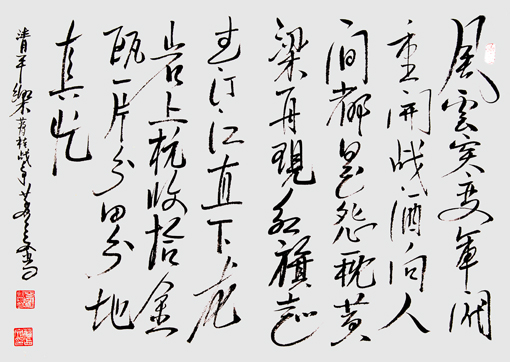 風雲突变軍閥
重開战洒向人
间都是怨枕黄
粱再現红旗越
过汀江直下龙
岩上杭收拾金
瓯一片分田分地
真忙
清平樂蒋桂战争